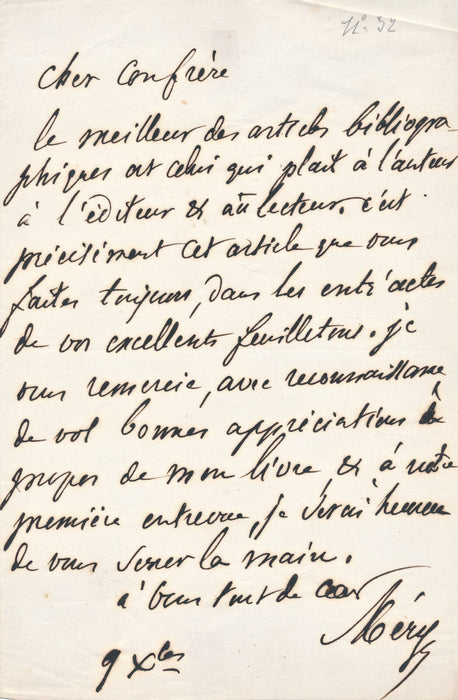 N° 32
cher confrère
le meilleur des articles bibliogra-
phiques est celui qui plait à l'auteur
à l'éditeur & au lecteur. c'est
précisément cet article que vous
faites toujours, dans les entr'actes
de vos excellents feuilletons. je
vous remercie, avec reconnaissance
de vos bonnes appréciations à
propos de mon livre, & à notre
première entrevue, je serai heureux
de vous serrer la main.
à vous tout de cœur
Méry
9 Xbre